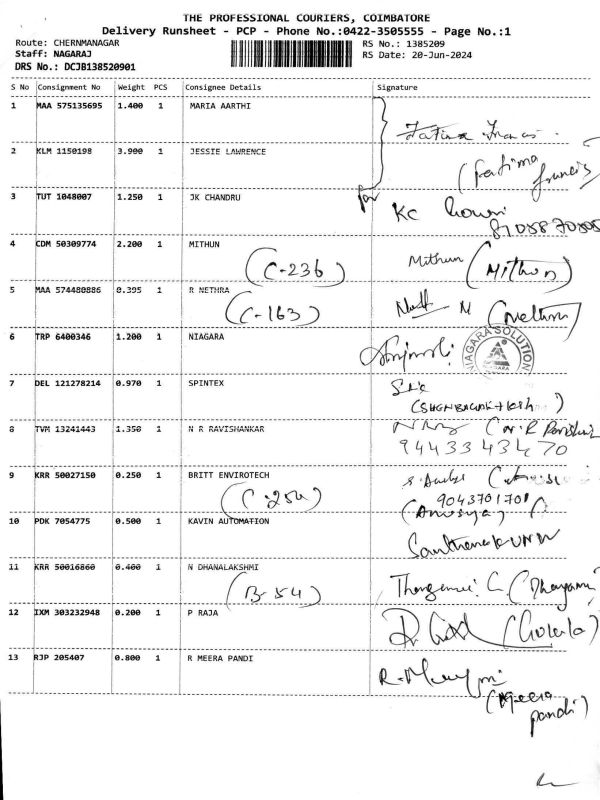 THE PROFESSIONAL COURIERS, COIMBATORE
Delivery Runsheet - PCP - Phone No.:0422-3505555 - Page No.:1
Route: CHERNMANAGAR RS No.: 1385209
Staff: NAGARAJ RS Date: 20-Jun-2024
DRS No.: DCJB138520901
S No Consignment No Weight PCS Consignee Details Signature
1 MAA 575135695 1.400 1 MARIA AARTHI
Fatima Francis
2 KLM 1150198 3.900 1 JESSIE LAWRENCE
(Fatima
francis)
3 TUT 1048007 1.250 1 JK CHANDRU
for KC Gowri
4 CDM 50309774 2.200 1 MITHUN
(C-236) Mithun (Mithun)
5 MAA 574480886 0.395 1 R NETHRA
(C-163) M (Nethra)
6 TRP 6400346 1.200 1 NIAGARA
NIAGARA SOLUTION
7 DEL 121278214 0.970 1 SPINTEX
8 TVM 13241443 1.350 1 N R RAVISHANKAR
9443343470
9 KRR 50027150 0.250 1 BRITT ENVIROTECH
(C-204) 9043701701
(Anusya)
10 PDK 7054775 0.500 1 KAVIN AUTOMATION
11 KRR 50016860 0.400 1 N DHANALAKSHMI
(B-54)
12 IXM 303232948 0.200 1 P RAJA
13 RJP 205407 0.800 1 R MEERA PANDI
(Meera
pandi)